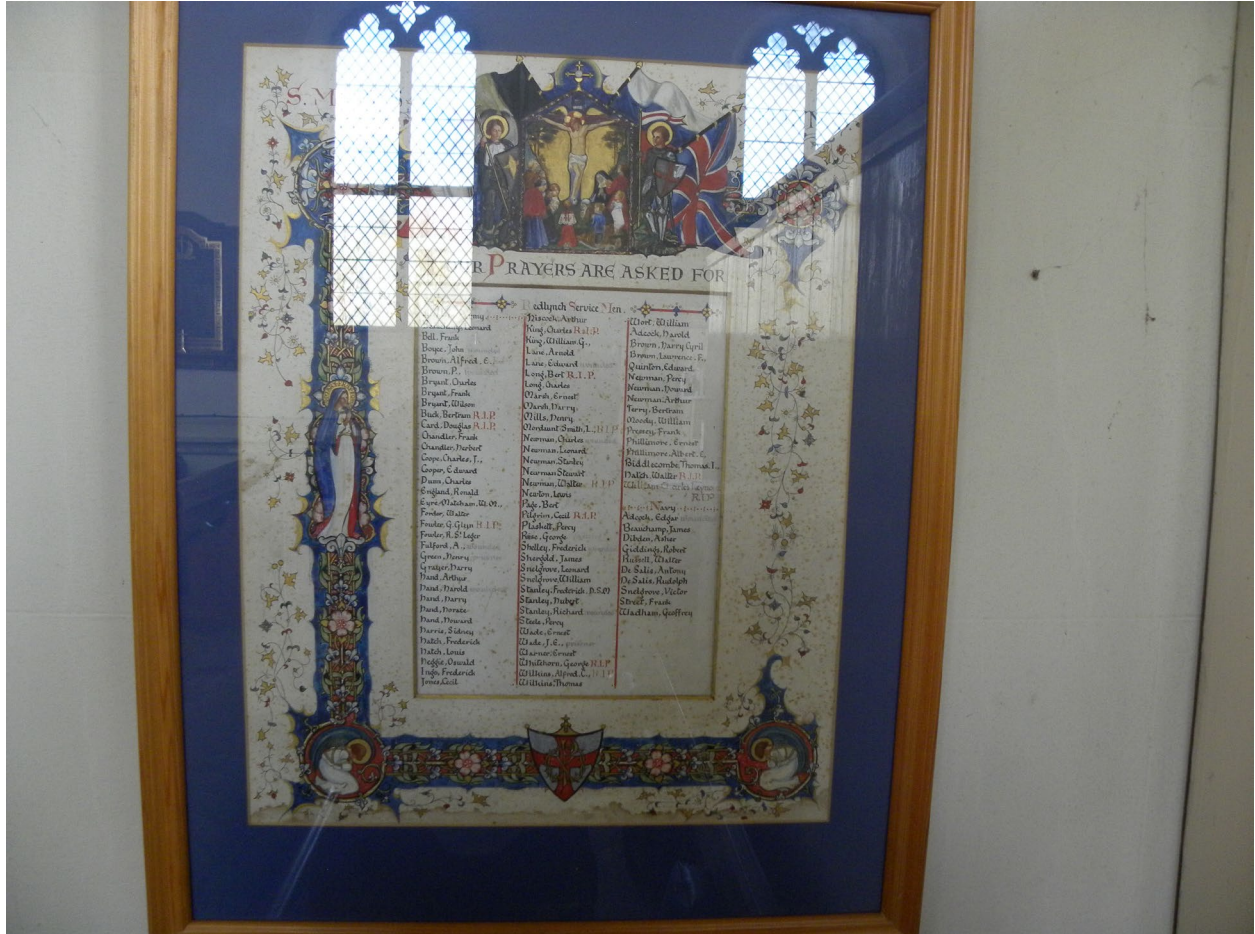 S. M
PRAYERS ARE ASKED FOR
Redlynch Service Men
Leonard
Bell, Frank
Boyce, John
Brown, Alfred. E.,
Brown, P.,
Bryant, Charles
Bryant, Frank
Bryant, Wilson
Buck, Bertram R.I.P.
Card, Douglas R.I.P.
Chandler, Frank
Chandler, Herbert
Coope, Charles, J.,
Cooper, Edward
Dunn, Charles
England, Ronald
Eyre-Matcham, W. M.,
Forder, Walter
Fowler, G. Glyn R.I.P.
Fowler, R. St Leger
Fulford, A.,
Green, Henry
Grayer, Harry
Hand, Arthur
Hand, Harold
Hand, Harry
Hand, Horace
Hand, Howard
Harris, Sidney
Hatch, Frederick
Hatch, Louis
Heggie, Oswald
Ings, Frederick
Jones, Cecil
Hiscock, Arthur
King, Charles R.I.P.
King, William. G.,
Lane, Arnold
Lane, Edward
Long, Bert R.I.P.
Long, Charles
Marsh, Ernest
Marsh, Harry
Mills, Henry
Mordaunt Smith, L., R.I.P.
Newman, Charles
Newman, Leonard
Newman, Stanley
Newman, Stewart
Newman, Walter R.I.P
Newton, Lewis
Page, Bert
Pilgrim, Cecil R.I.P.
Plaskett, Percy
Rose, George
Shelley, Frederick
Shergold, James
Snelgrove, Leonard
Snelgrove, William
Stanley, Frederick, D.S.M
Stanley, Hubert
Stanley, Richard
Steele, Percy
Wade, Ernest
Wade, J. E.,
Warner, Ernest
Whitehorn, George R.I.P
Wilkins, Alfred, C., R.I.P
Wilkins, Thomas
Wort, William
Adcock, Harold
Brown, Harry Cyril
Brown, Lawrence. F.,
Quinton, Edward
Newman, Percy
Newman, Howard
Newman, Arthur
Terry, Bertram
Moody, William
Pressey, Frank
Phillimore, Ernest
Phillimore Albert. E.
Biddlecombe, Thomas. I.,
Hatch, Walter R.I.P.
Williams Charles
R.I.P.
Navy
Adcock, Edgar
Beauchamp, James
Dibden, Asher
Giddings, Robert
Russell, Walter
De Salis, Antony
De Salis, Rudolph
Snelgrove, Victor
Street, Frank
Wadham, Geoffrey